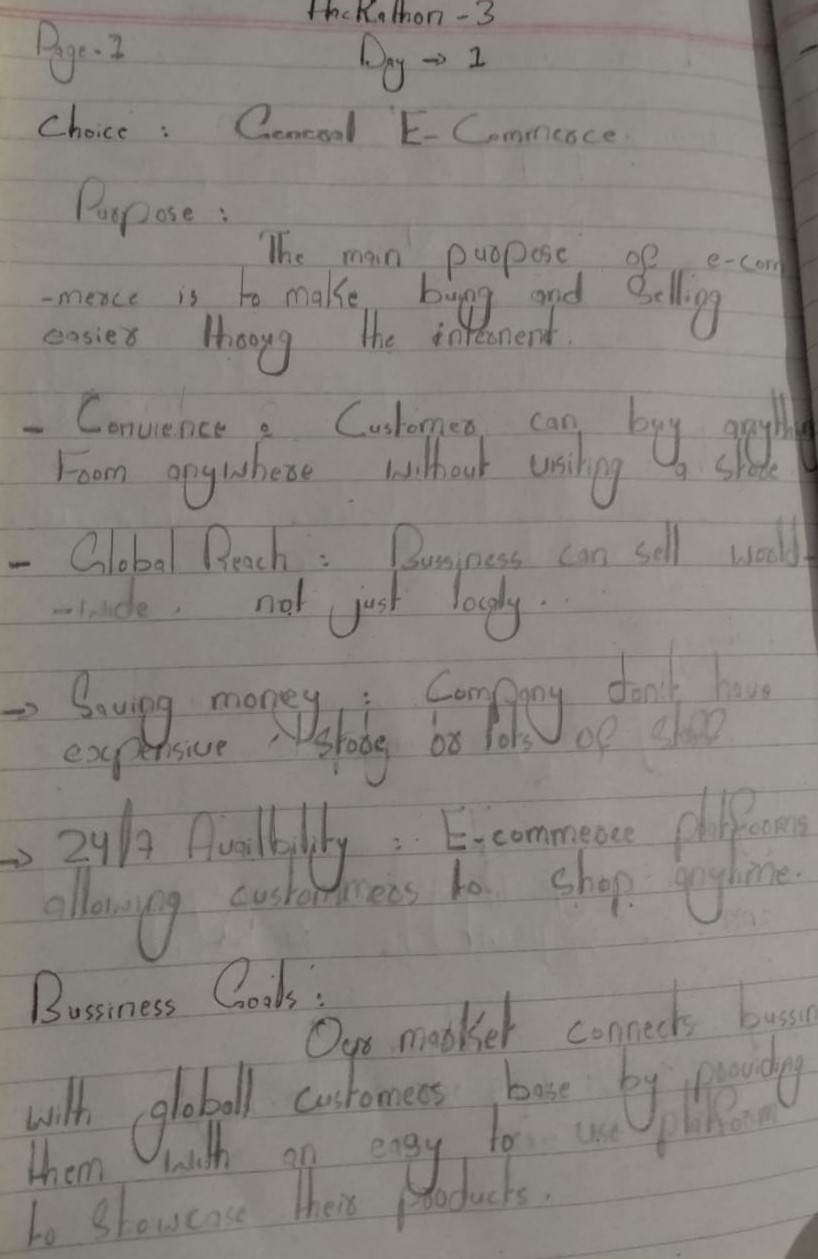 Hackathon - 3
Page - 1
Day → 1
Choice : General E-Commerce.
Purpose :
The main purpose of e-com
-merce is to make buyng and Selling
easier throuyg the internent.
- Convience : Customer can buy anythi
From anywhere without visiting a store
- Global Reach : Bussiness can sell world-
-wide. not just localy.
→ Saving money : Company don't have
expensive store or lots of staff
→ 24/7 Availbility : E-commerce platforms
allowing custommers to shop anytime.
Bussiness Goals :
Our market connects bussin
with globall customers base by providing
them with an easy to use platform
to showcase their products.